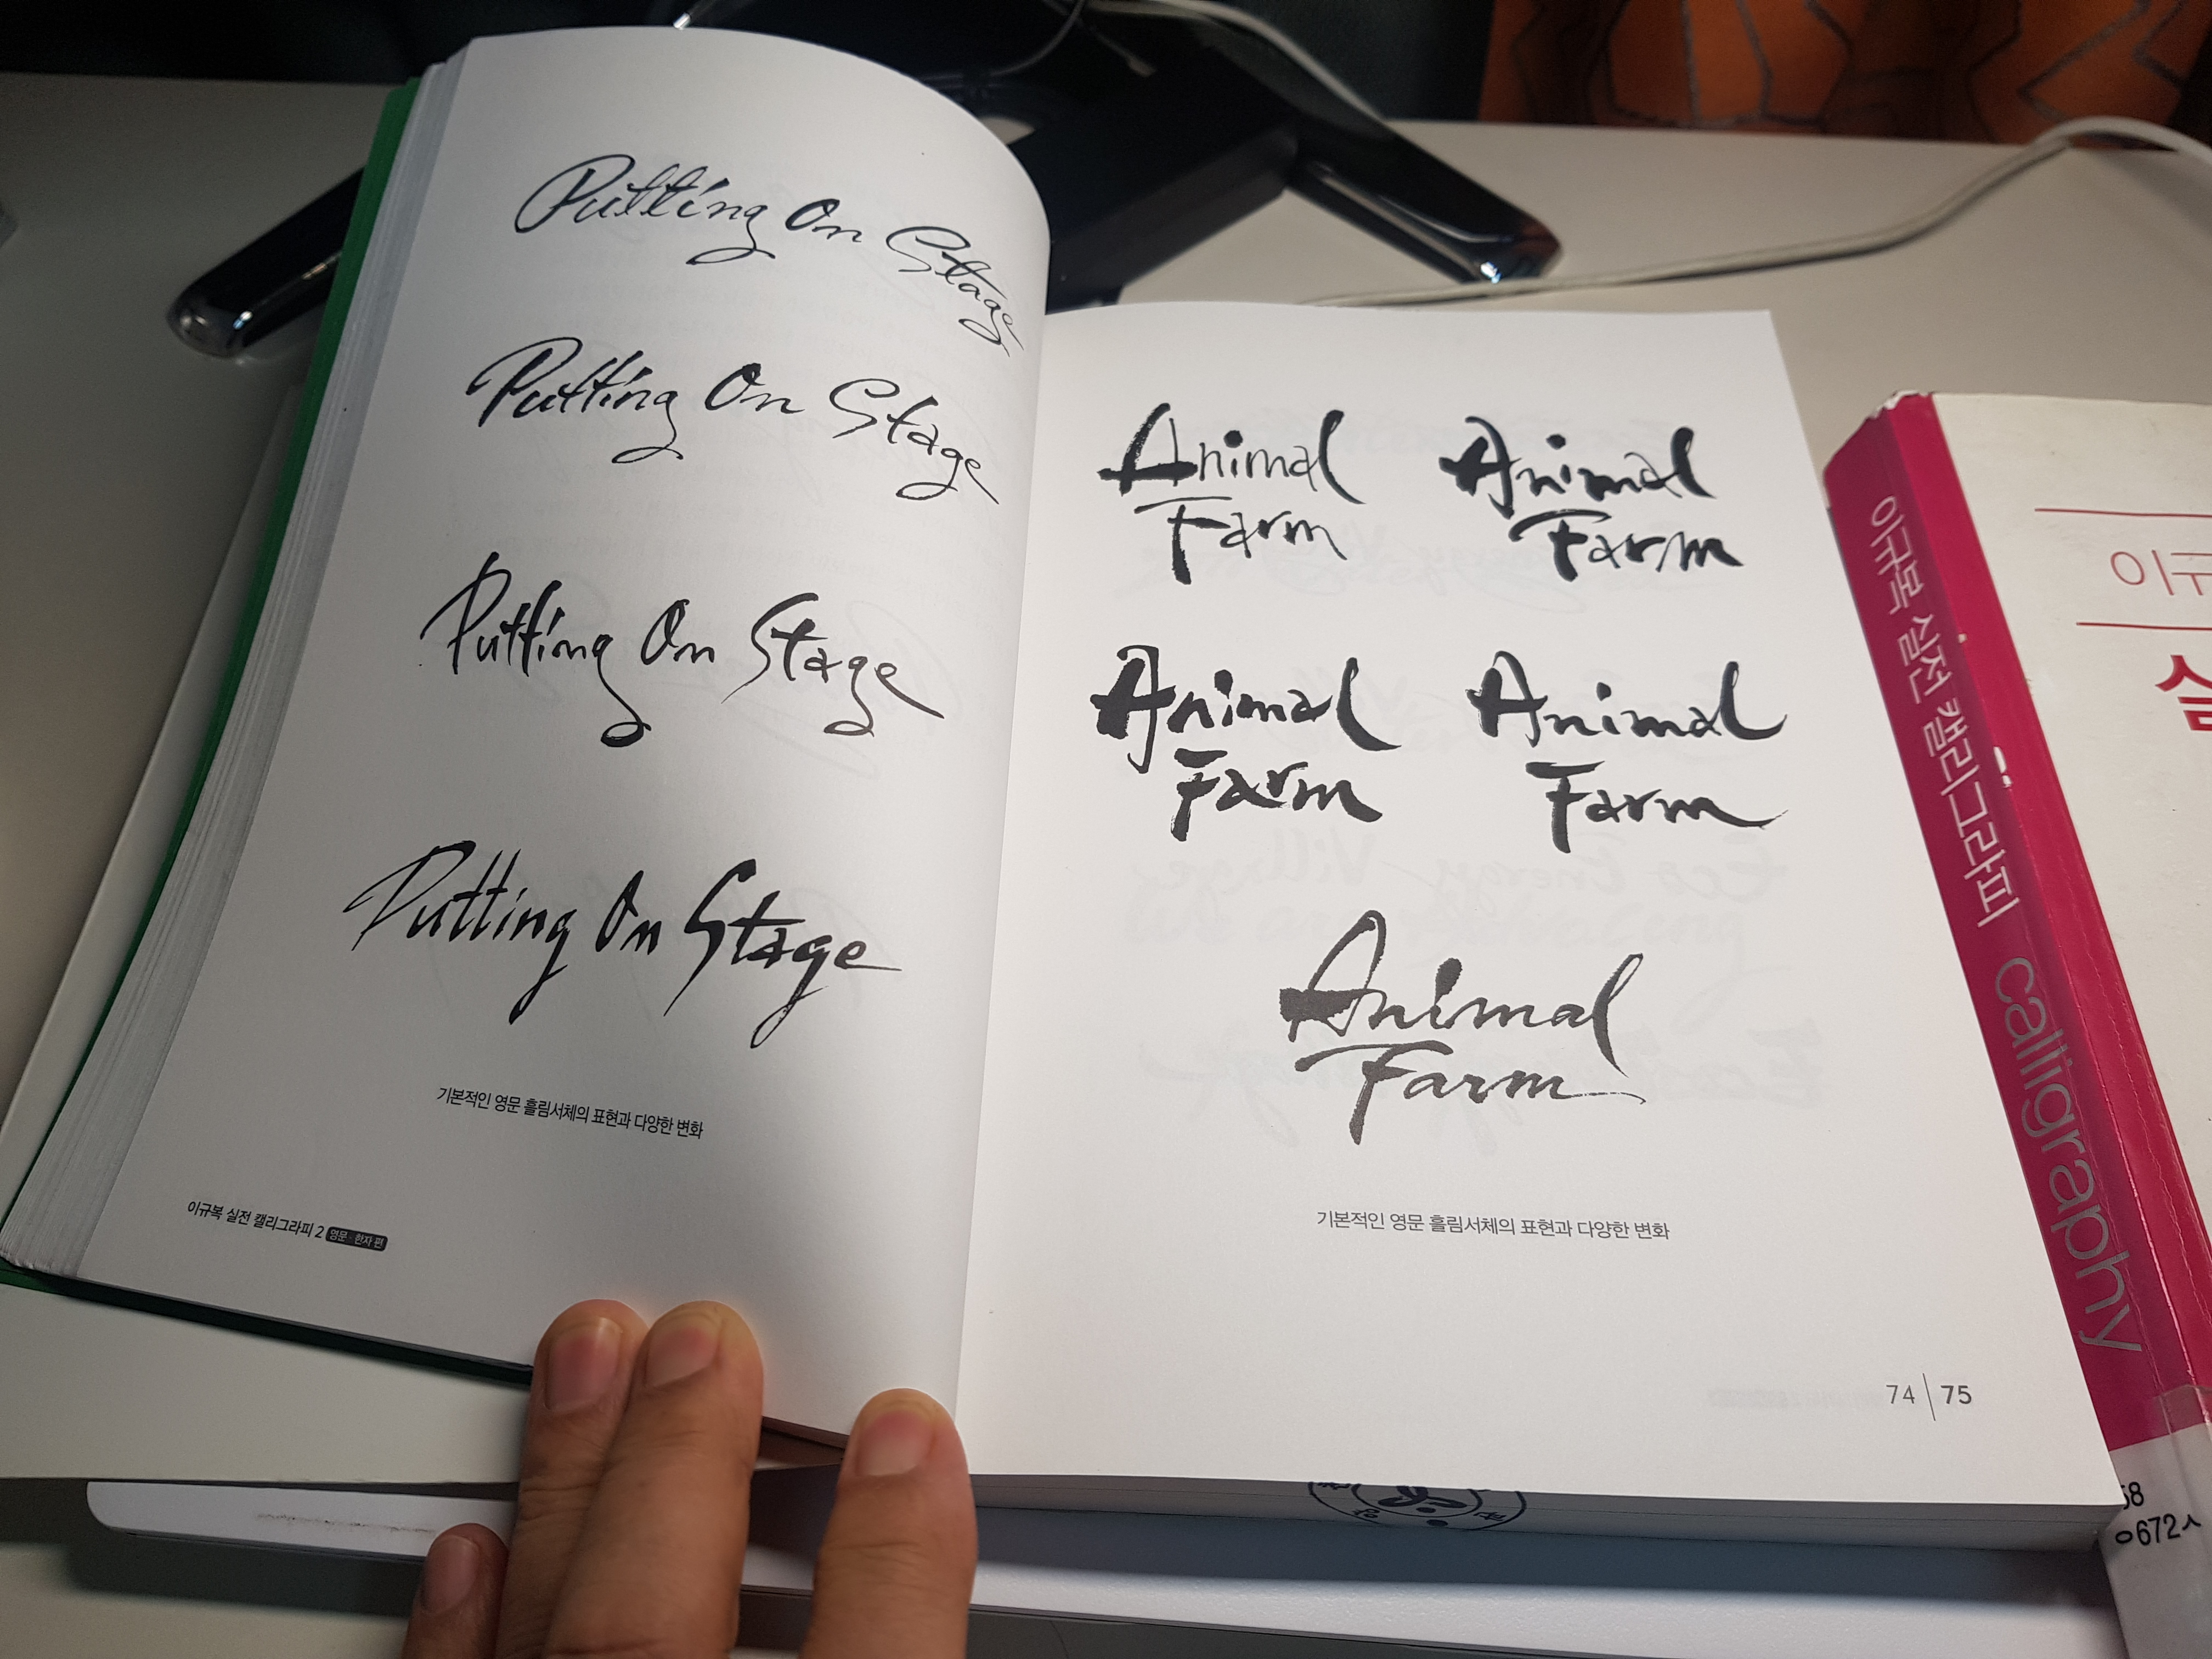 Putting On Stage
Putting On Stage
Putting On Stage
Putting On Stage
기본적인 영문 흘림서체의 표현과 다양한 변화
이규복 실전 캘리그라피 2 영문·한자 편
Animal
Farm
Animal
Farm
Animal
Farm
Animal
Farm
Animal
Farm
기본적인 영문 흘림서체의 표현과 다양한 변화
74 75
이규복 실전 캘리그라피 calligraphy
이규
실
58
ㅇ672ㅅ